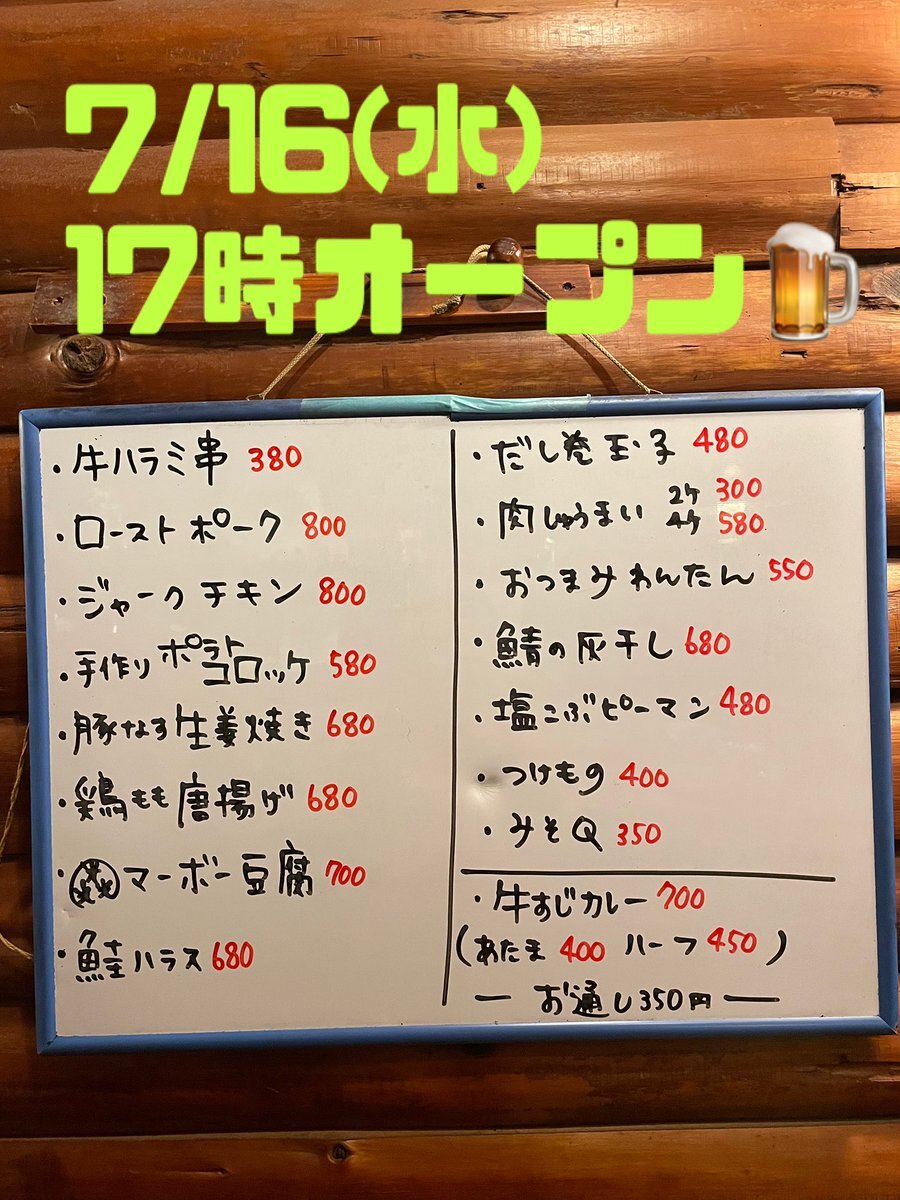 7/16(水)
17時オープン
・牛ハラミ串 380
・ローストポーク 800
・ジャークチキン 800
・手作りポテトコロッケ 580
・豚なす生姜焼き 680
・鶏もも唐揚げ 680
・マーボー豆腐 700
・鮭ハラス 680
・だし巻玉子 480
・肉しゅうまい 2ケ 300
4ケ 580
・おつまみわんたん 550
・鯖の灰干し 680
・塩こぶピーマン 480
・つけもの 400
・みそQ 350
・牛すじカレー 700
(あたま 400 ハーフ 450)
― お通し350円 ―